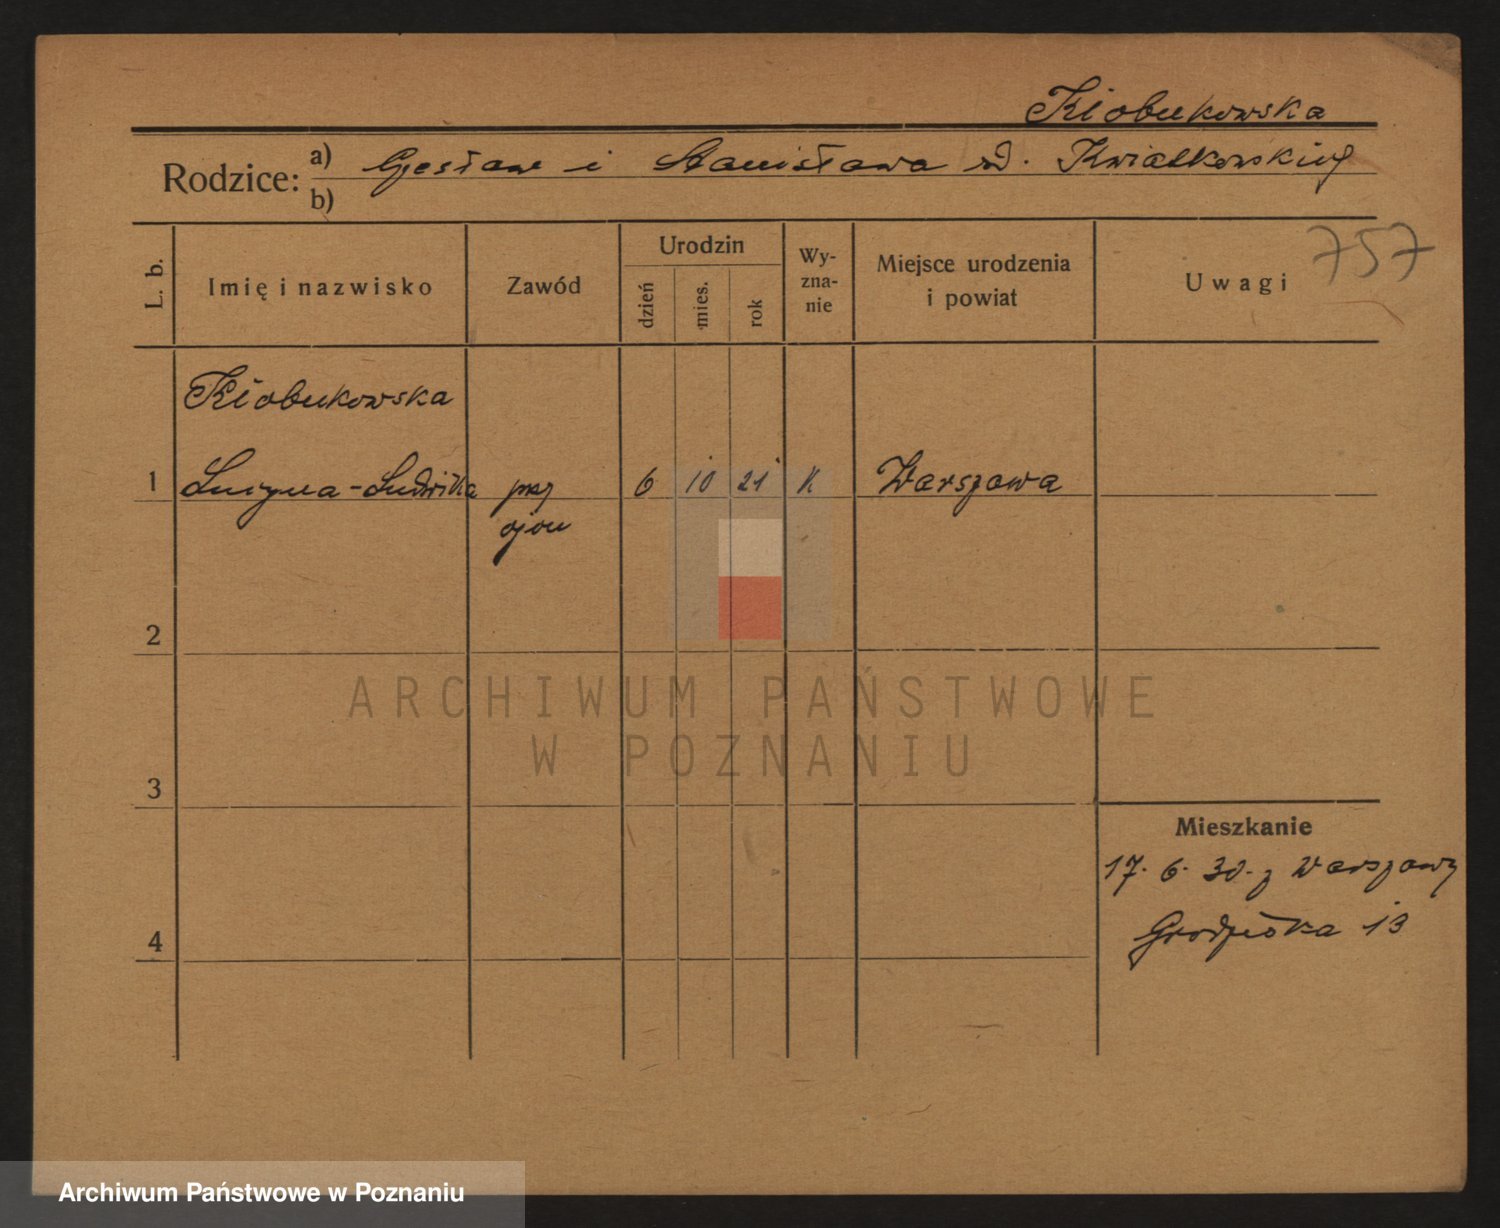 Kłobukowska
Rodzice: a) Czesław i Stanisława d. Kwiatkowskich
b)
757
L. b. Imię i nazwisko Zawód Urodzin dzień mies. rok Wy-zna-nie Miejsce urodzenia i powiat Uwagi
Kłobukowska
1 Ludwika przy 6 10 21 K Warszawa
ojcu
2
ARCHIWUM PAŃSTWOWE
W POZNANIU
3
Mieszkanie
17. 6. 30. z Warszawy
4 Grodziska 13
Archiwum Państwowe w Poznaniu